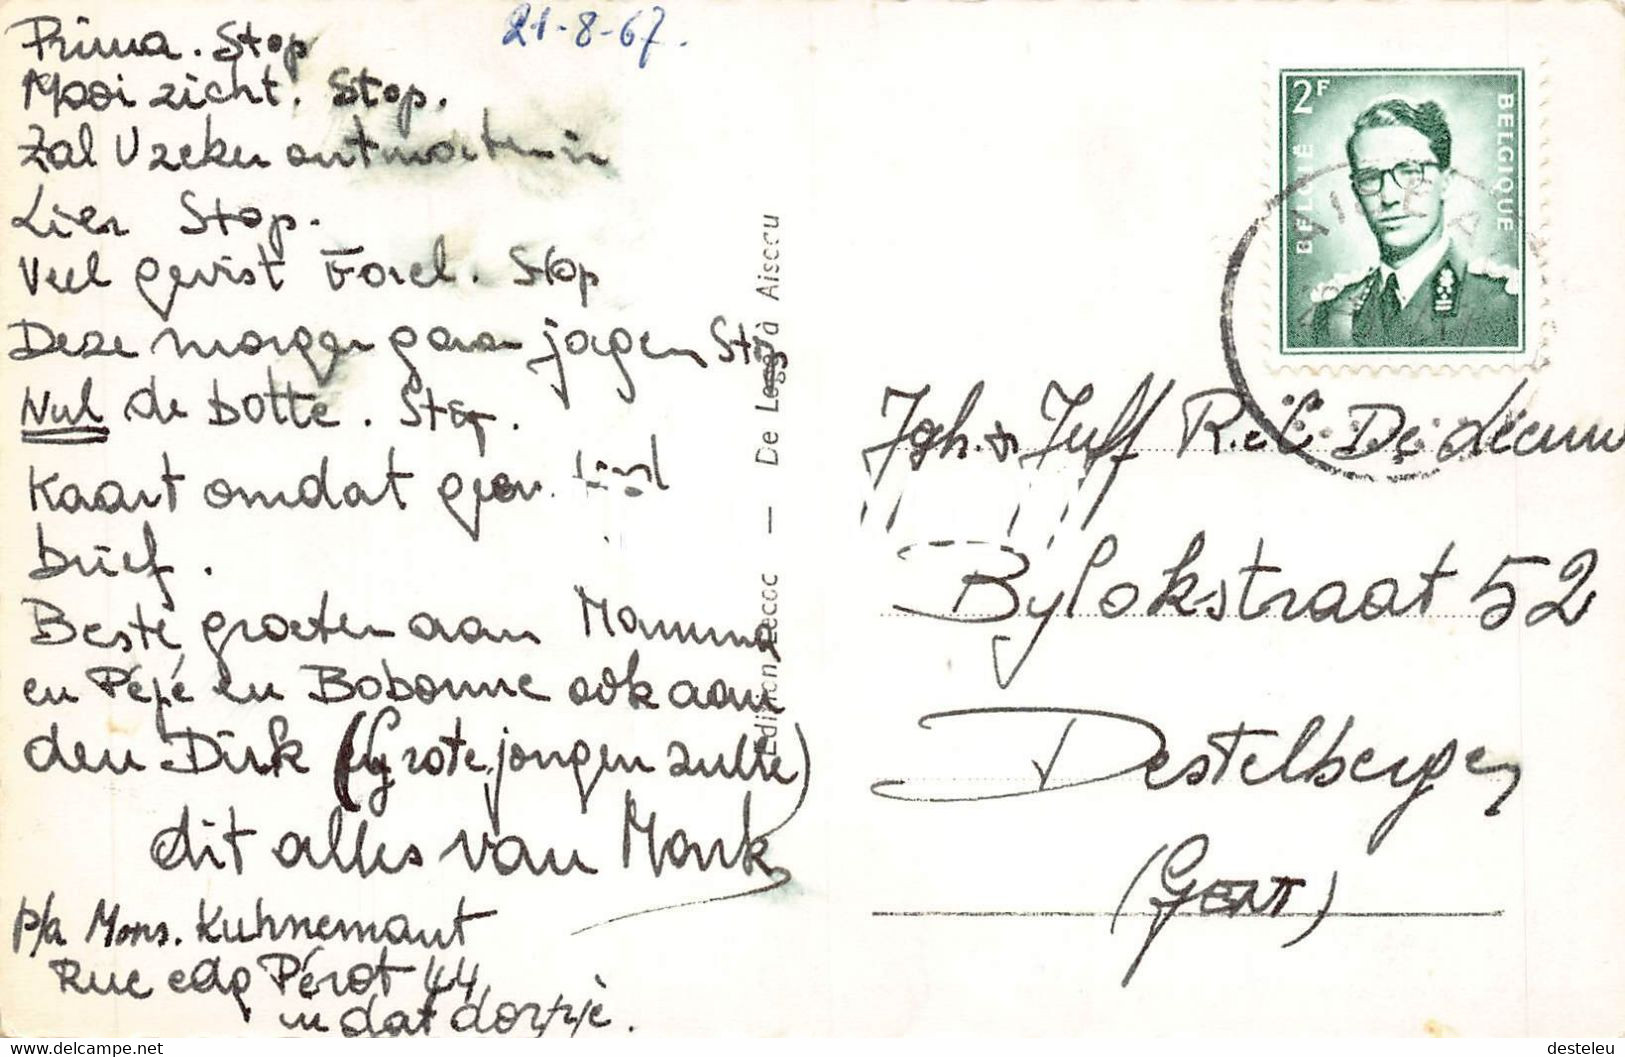 21-8-67.
Prima. Stop
Mooi zicht. Stop.
Zal U zeker ontmoeten in
Lier Stop.
Veel gevist Forel. Stop
Deze morgen gaan jagen Stop
Nul de botte. Stop.
Kaart omdat geen tijd
brief.
Beste groeten aan Mamma
en Pépé en Bobonne ook aan
den Dirk (grote jongen zulle)
dit alles van Mark
p/a Mons. Kuhnemant
Rue edg Pérot 44
in dat dorpje.
Edition Lecoc — De Loggi à Aisccu
2F
BELGIË
BELGIQUE
Jgh. & Juff R. & C. De deeuw
Bylokstraat 52
Destelbergen
(GENT)
www.delcampe.net
desteleu